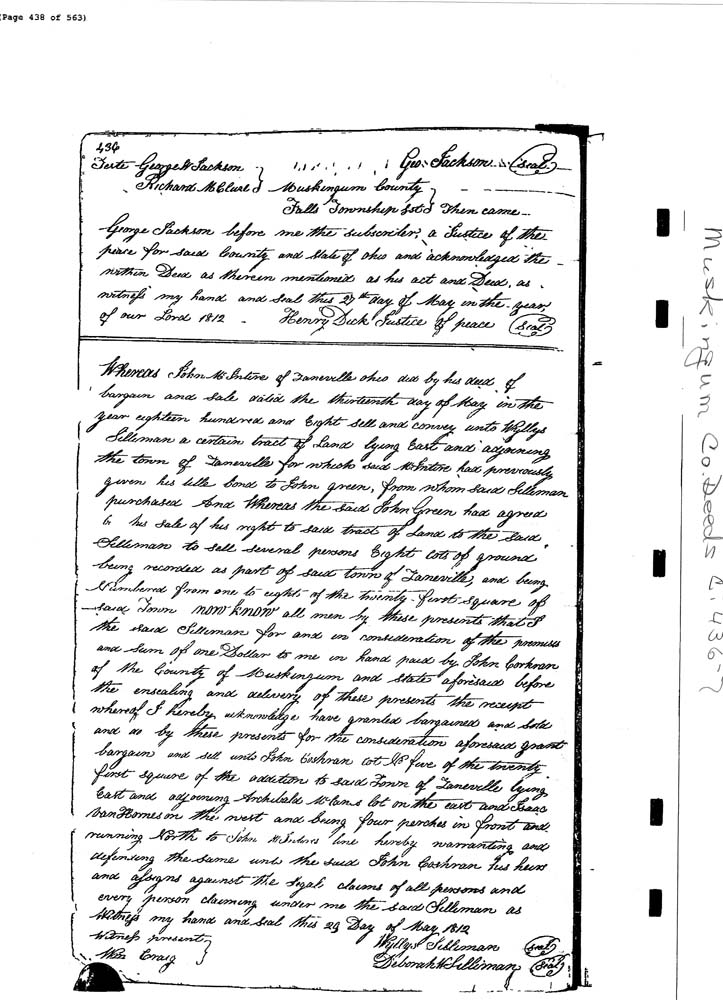 (Page 438 of 563)
436
Teste George W Jackson } Geo. Jackson (seal)
Richard McClure } Muskingum County }
Falls Township Sct } Then came
George Jackson before me the subscriber, a Justice of the
peace for said County and State of Ohio and acknowledged the
within Deed as therein mentioned as his act and Deed, as
witness my hand and seal this 27th day of May in the year
of our Lord 1812 - Henry Dick Justice of peace (Seal)
Whereas John McIntire of Zaneville Ohio did by his deed of
bargain and sale dated the thirteenth day of May in the
year eighteen hundred and Eight sell and convey unto Wyllys
Silliman a certain tract of Land lying East and adjoining
the town of Zaneville for which said McIntire had previously
given his title bond to John green, from whom said Silliman
purchased And Whereas the said John Green had agreed
in his sale of his right to said tract of Land to the said
Silliman to sell several persons Eight lots of ground
being recorded as part of said town of Zaneville, and being
Numbered from one to eight of the twenty first square of
said Town now know all men by these presents that I
the said Silliman for and in consideration of the premises
and sum of one Dollar to me in hand paid by John Corhran
of the County of Muskingum and State aforesaid before
the ensealing and delivery of these presents the receipt
whereof I hereby acknowledge have granted bargained and sold
and do by these presents for the consideration aforesaid grant
bargain and sell unto John Coshran lot No five of the twenty
first square of the addition to said Town of Zaneville lying
East and adjoining Archibald McCams lot on the east and Isaac
Van Hornes on the west and being four perches in front and
running North to John McIntires line hereby warranting and
defending the same unto the said John Coshran his heirs
and assigns against the legal claims of all persons and
every person claiming under me the said Silliman as
Witness my hand and seal this 23 Day of May 1812
Witness present } Wyllys Silliman (seal)
Wm Craig } Deborah W Silliman (seal)
Muskingum Co. Deeds C: 436-7